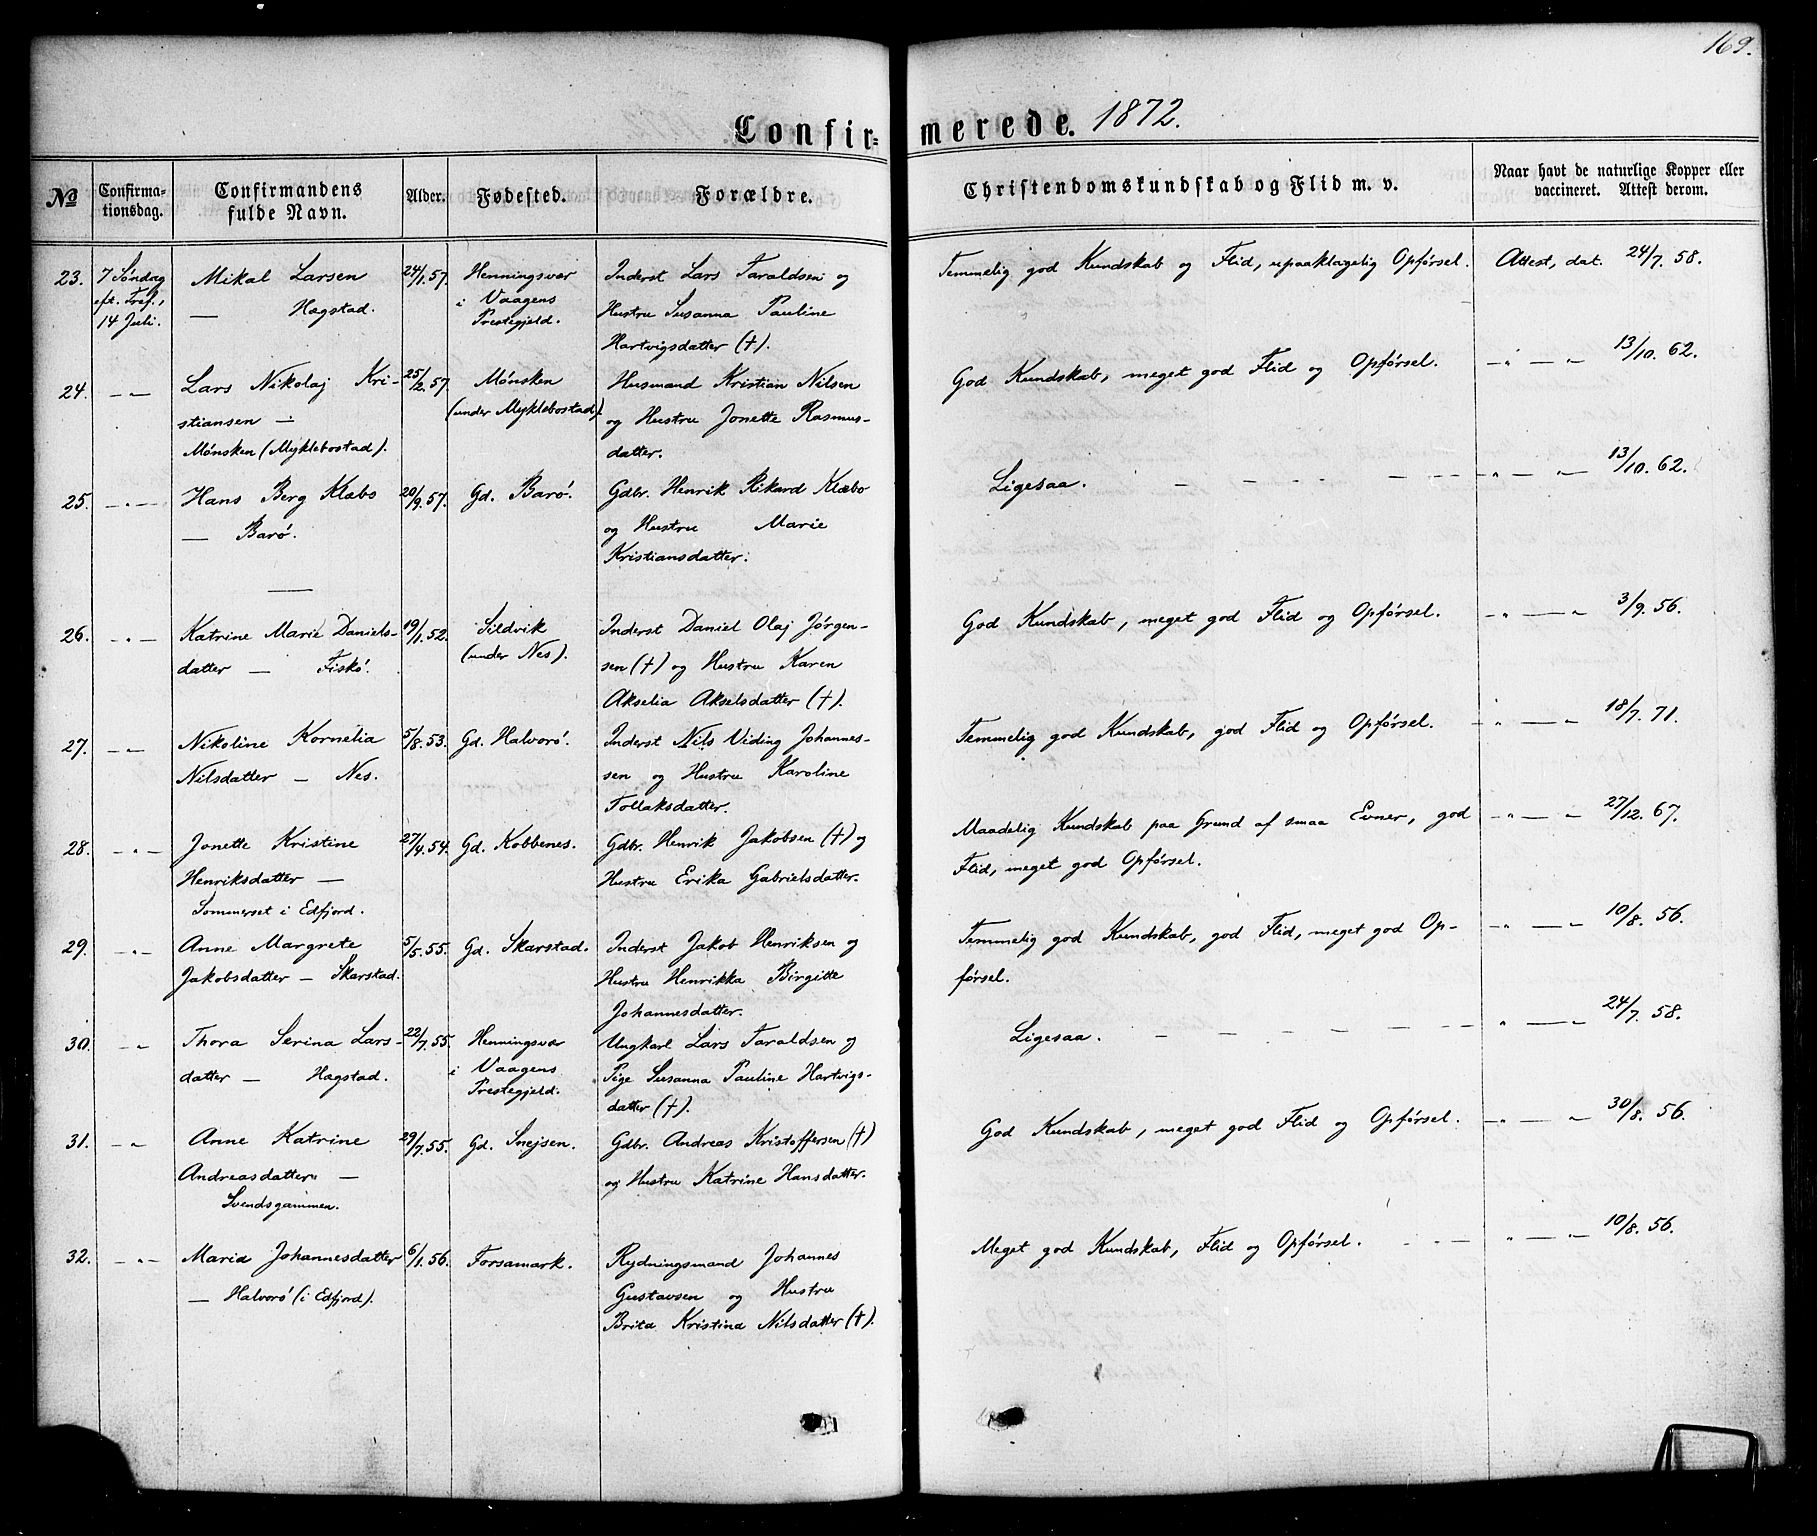 169.
Confir= merede. 1872.
No
Confirma-
tionsdag.
Confirmandens
fulde Navn.
Alder.
Fødested.
Forældre.
Christendomskundskab og Flid m. v.
Naar havt de naturlige Kopper eller
vaccineret. Attest derom.
23. 7 Søndag Mikal Larsen 24/1.57. Henningsvær Inderst Lars Taraldsen og Temmelig god Kundskab og Flid, upaaklagelig Opførsel. Attest, dat. 24/7. 58.
eft. Tref., — Hagstad. i Vaagens Hustru Susanna Pauline
14 Juli. Prestegjeld. Hartvigsdatter (†).
24. — " — Lars Nikolaj Kri- 25/2.57. Mønsken Husmand Kristian Nilsen God Kundskab, meget god Flid og Opførsel. — " — " 13/10. 62.
stiansen — (under Myklebostad). og Hustru Jonette Rasmus-
Mønsken (Myklebostad). datter.
25. — " — Hans Berg Klæbo 20/9.57. Gd. Barø. Gdbr. Henrik Rikard Klæbo Ligesaa. — — — — — " — " — 13/10. 62.
— Barø. og Hustru Marie
Kristiansdatter.
—
26. — " — Katrine Marie Daniels- 19/1.52. Sildvik Inderst Daniel Olaj Jørgen- God Kundskab, meget god Flid og Opførsel. " — " 3/9. 56.
datter — Fiskø. (under Nes). sen (†) og Hustru Karen
Akselia Akselsdatter (†).
27. — " — Nikoline Kornelia 5/8.53. Gd. Halvorø. Inderst Nils Viding Johannes- Temmelig god Kundskab, god Flid og Opførsel. — " — " 18/7. 71.
Nilsdatter — Nes. sen og Hustru Karoline
Tollaksdatter.
28. — " — Jonette Kristine 27/4.54. Gd. Kobbenes. Gdbr. Henrik Jakobsen (†) og Maadelig Kundskab paa Grund af smaa Evner, god — " — " 27/12. 67.
Henriksdatter — Hustru Erika Gabrielsdatter. Flid, meget god Opførsel.
Sommerset i Edfjord.
29. — " — Anne Margrete 5/5.55. Gd. Skarstad. Inderst Jakob Henriksen og Temmelig god Kundskab, god Flid, meget god Op- — " — " 10/8. 56.
Jakobsdatter — Skarstad. Hustru Henrikka Birgitte førsel.
Johannesdatter.
30. — " Thora Serina Lars- 22/7.55. Henningsvær Ungkarl Lars Taraldsen og Ligesaa. — — — — — " — " 24/7. 58.
datter — Hagstad. i Vaagens Pige Susanna Pauline Hartvigs-
Prestegjeld. datter (†).
31. — " Anne Katrine 29/7.55. Gd. Snejsen. Gdbr. Andreas Kristoffersen (†) God Kundskab, meget god Flid og Opførsel. — " — " 30/8. 56.
Andreasdatter — og Hustru Katrine Hansdatter.
Svendsgammen.
32. — " — Maria Johannesdatter 6/1.56. Forsamark. Rydningsmand Johannes Meget god Kundskab, Flid og Opførsel. — — " — " 10/8. 56.
— Halvorø (i Edfjord). Gustavsen og Hustru
Brita Kristina Nilsdatter (†).